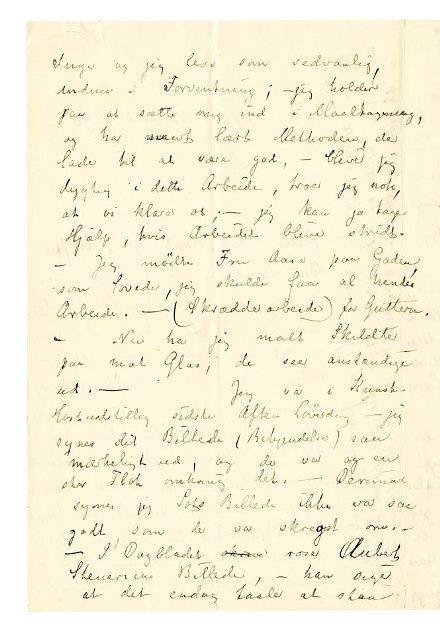 Inger og jeg leve som sedvanlig,
endnu i Forventning; – jeg holder
paa at sætte mig ind i Maaltagning,
og ha nu lært Methoden, de
lade til at være god, – blive jeg
dygtig i dette Arbeide, troer jeg nok,
at vi klare os; – jeg kan jo tage
Hjælp, hvis Arbeidet blive stridt. –
– Jeg mødte Fru Aase paa Gaden
som lovede, jeg skulde faa al hendes
Arbeide. – (Skrædderarbeide) for Gutten.
– Nu ha jeg malt Skildte
paa mat Glas, de see anstændige
ud. – Jeg va i Kunst-
Høstudstilling sidste Aften Lørdag – jeg
synes dit Billede (Bebyndelse) saa
mærkeligt ud, og de va og en
stor Flok omkring det. – Derimod
synes jeg Billede ikke va saa
godt som de va skreget om. –
– I Dagbladet rose Aubert
Stenersens Billede, – han sige
at det endog taale at staa